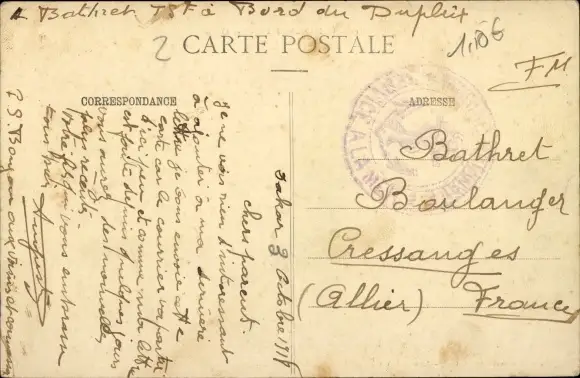 A Bathret TSF à Bord du Dupleix
2
CARTE POSTALE
1,10€
FM
CORRESPONDANCE
ADRESSE
Dakar 3 Octobre 191
chers parent
Je ne vois rien d'interessant
à ajouter a ma derniere
lettre je vous envoie cette
carte car le courrier va partir
d'ici peu et comme ma lettre
est faite depuis quelques jours
vous aurez des nouvelles
plus recente
votre fils qui vous embrasse
tous
Auguste
Bonjour aux voisins et
Bathret
Boulanger
Cressanges
(Allier) France